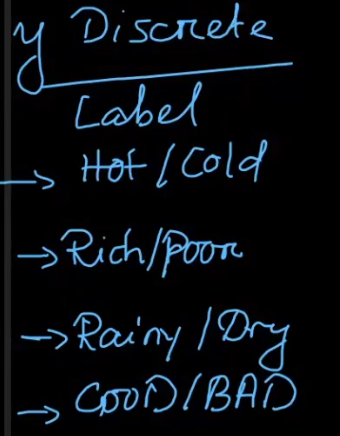 y Discrete
Label
→ Hot / Cold
→ Rich/poor
→ Rainy / Dry
→ GOOD / BAD